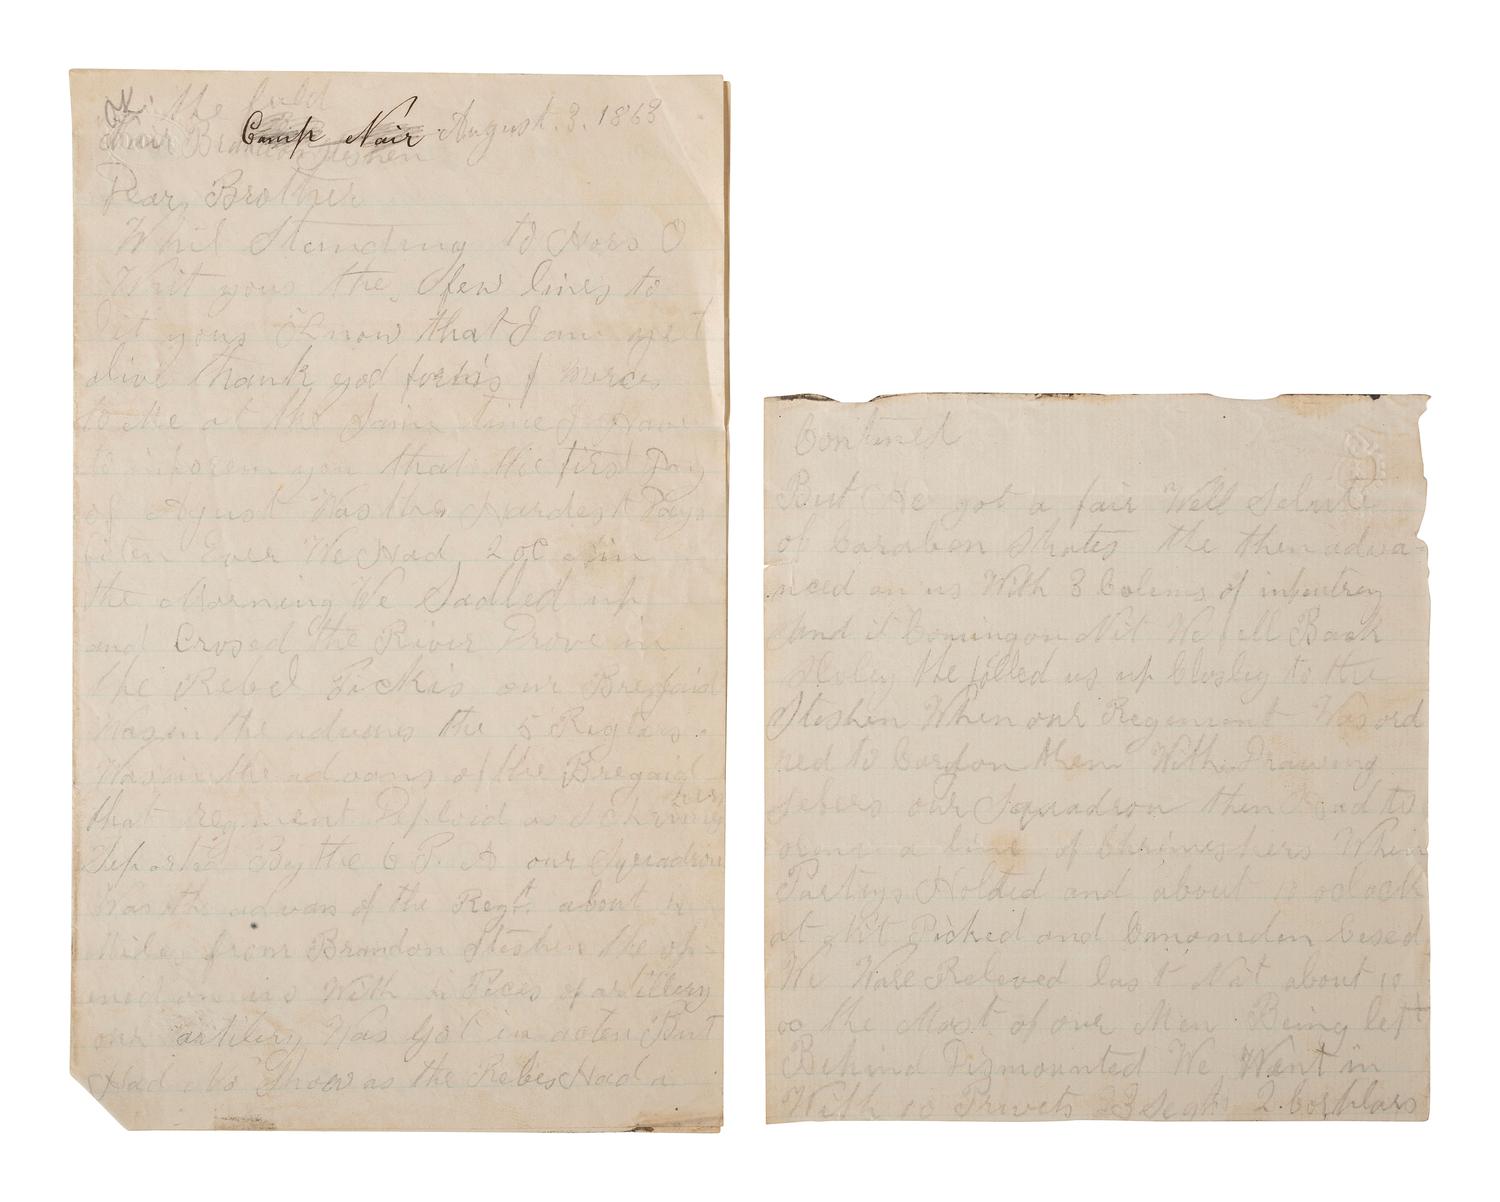 the field
Camp Nair August. 3. 1863
Nair Brandon Steshen
Dear, Brother
Whil Standing to Hors I
Writ yous the, few lines to
let yous Know that I am yet
alive thank god for his merces
to Me at the Same time I Have
to inforem you that the first Day
of Agust Was the Hardest Days
fiten Ever We Had 2 oC in
the Morning We Sadled up
and Crosed the River Drove in
the Rebel Pickis our Bregaid
Was in the advans the 5 Reglars.
Was in the advans of the Bregaid
that regment Deploid as
Seported By the 6 P. A our Squadron
Was the advans of the Regt. about
Mile from Brandon Steshen the op-
ened on us With Pices of artillery
our artilery Was Got in acten But
Had No Show as the Rebes Had a
Contined
But He got a fair Well Selute
of Caraben Shotes the then adva-
nced on us With 3 Colems of infentrey
and it Coming on Nit We fell Back
Sloley the folled us up Closley to the
Steshen When our Regement Was ord
red to Cardon them With Drawing
Sebers our Squadron then Had to
a line of Chrimeshers When
Partys Holted and about 10 oclock
at Nit Picked and Canoneden Cesed
We Ware Releved last Nit about 10
as the Most of our Men Being left
Behind Dismounted We Went in
With 60 Privets 3 Segts 2. Corplars